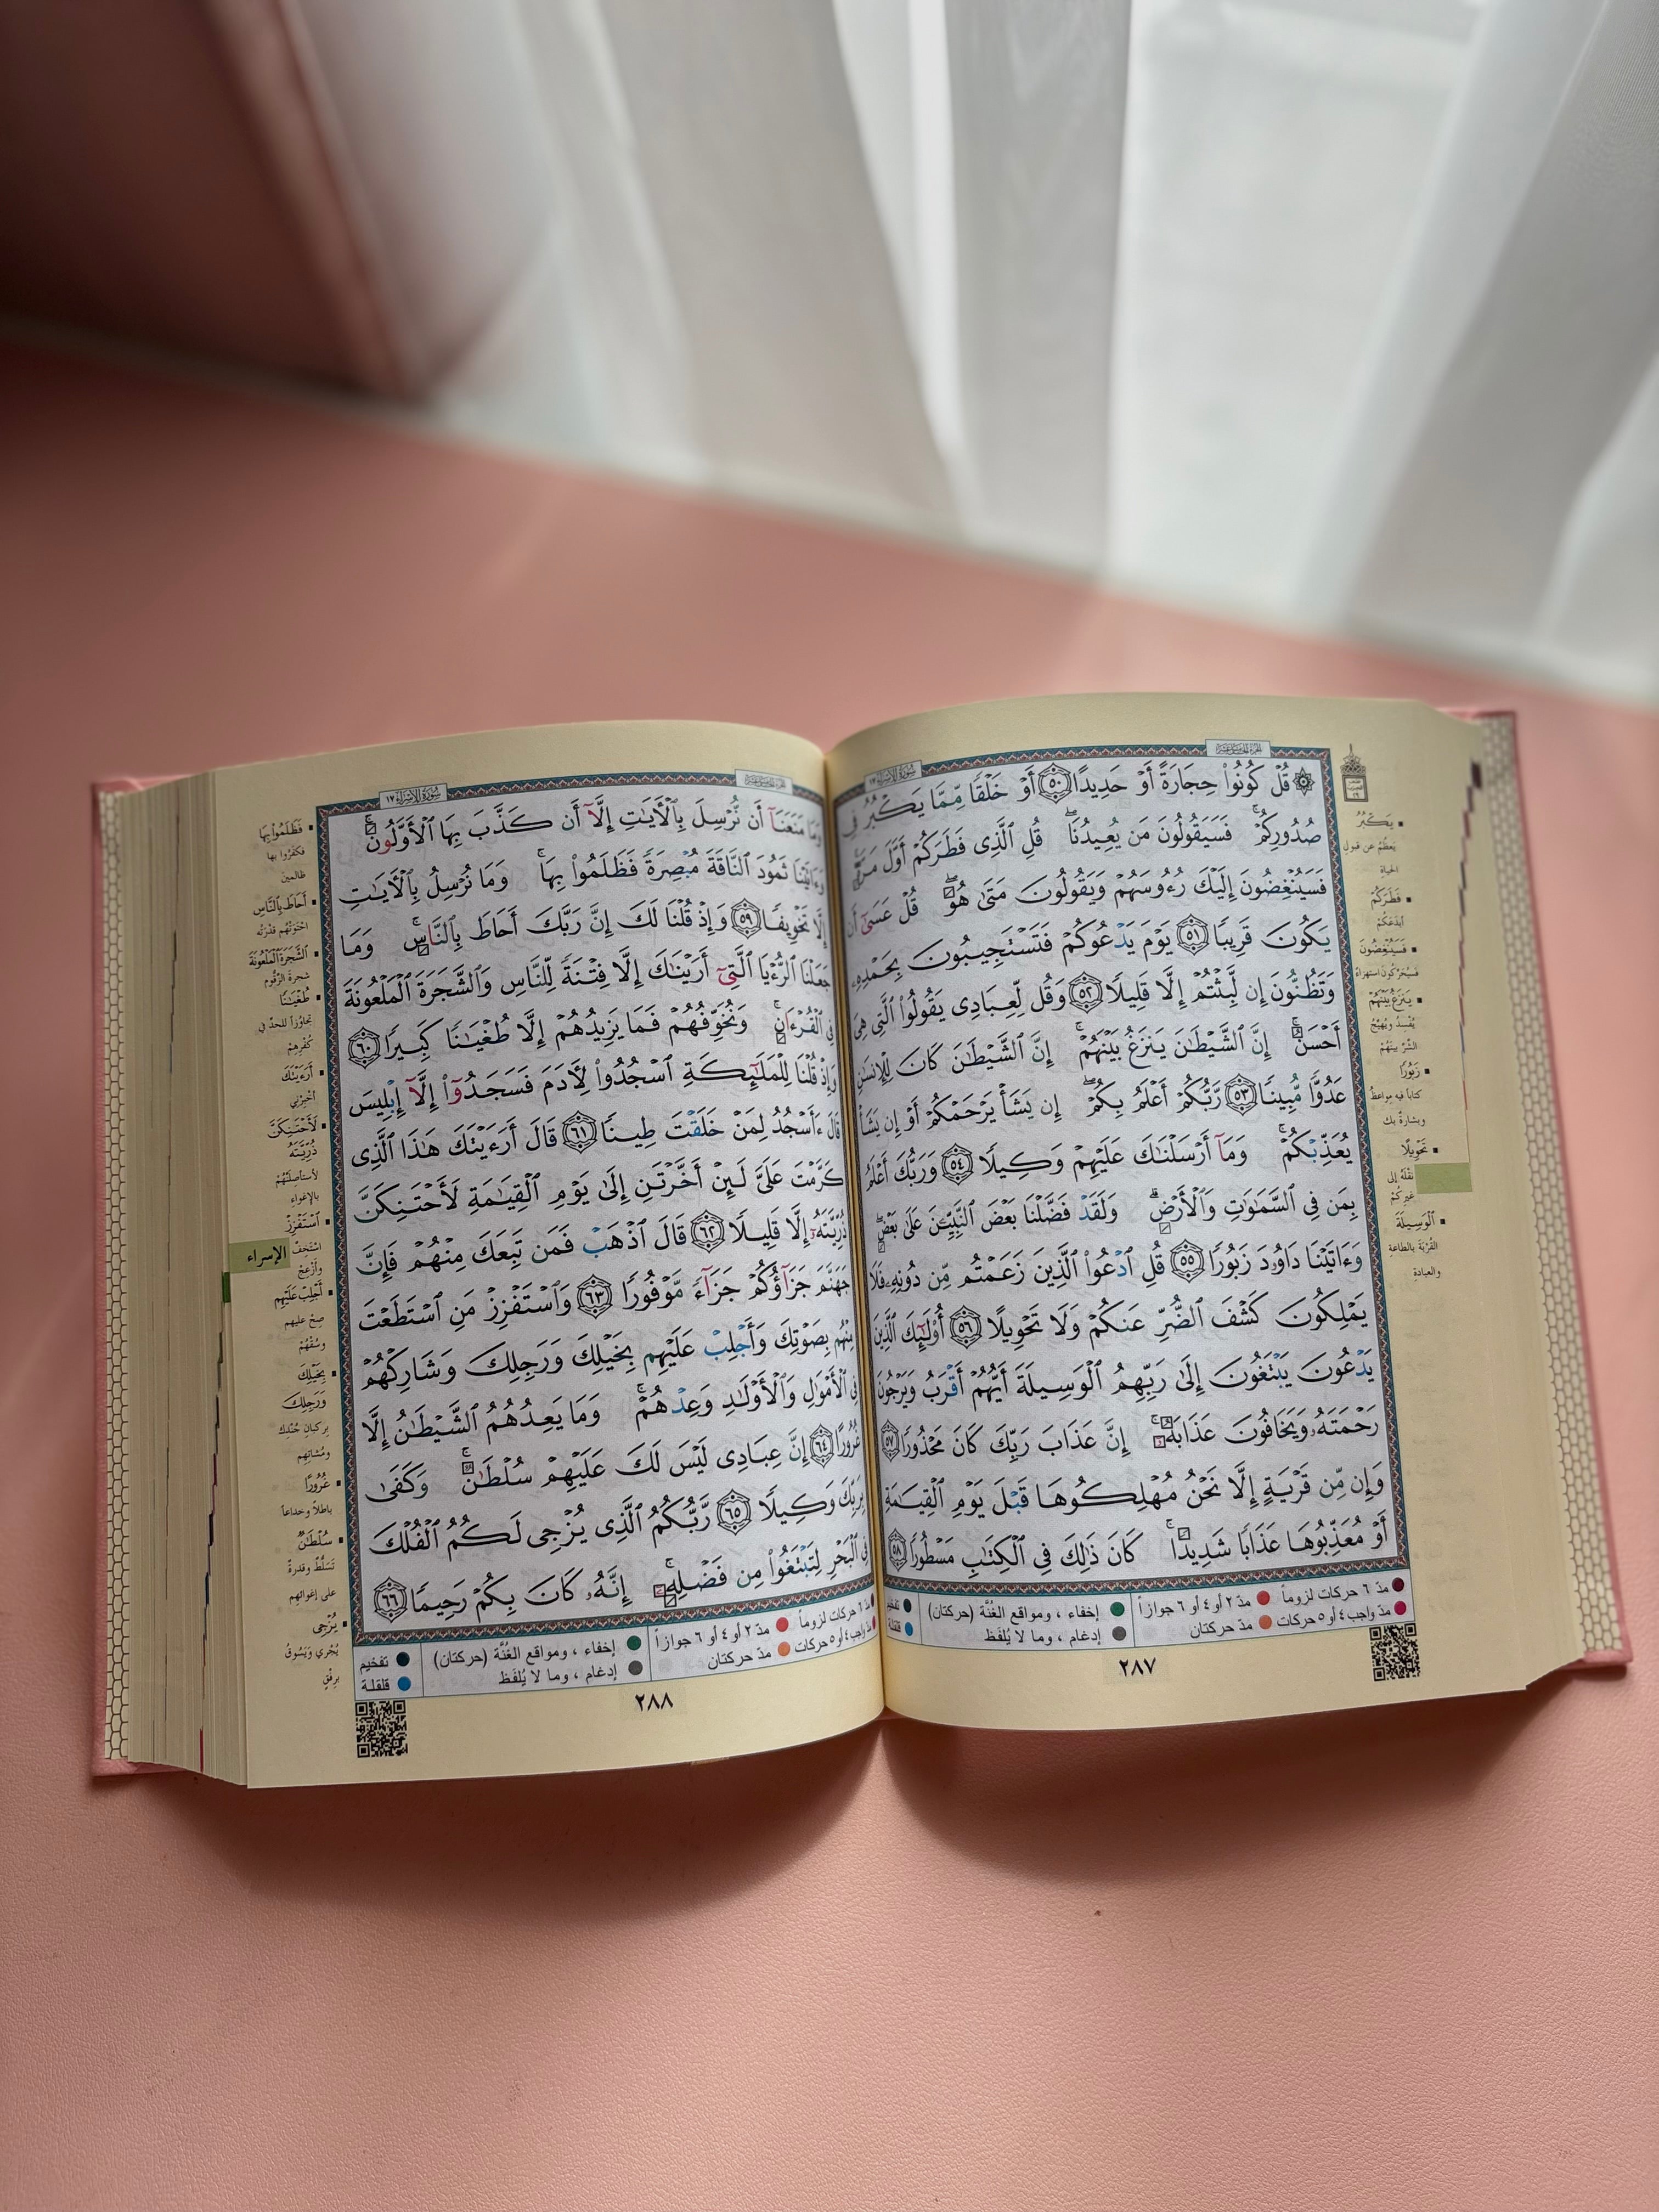 سُورَةُ الإِسْرَاء ١٧
۞ قُلْ كُونُوا۟ حِجَارَةً أَوْ حَدِيدًا ٥٠ أَوْ خَلْقًا مِّمَّا يَكْبُرُ فِى
صُدُورِكُمْ ۚ فَسَيَقُولُونَ مَن يُعِيدُنَا ۖ قُلِ ٱلَّذِى فَطَرَكُمْ أَوَّلَ مَرَّةٍ ۚ
فَسَيُنْغِضُونَ إِلَيْكَ رُءُوسَهُمْ وَيَقُولُونَ مَتَىٰ هُوَ ۖ قُلْ عَسَىٰٓ أَن
يَكُونَ قَرِيبًا ٥١ يَوْمَ يَدْعُوكُمْ فَتَسْتَجِيبُونَ بِحَمْدِهِۦ
وَتَظُنُّونَ إِن لَّبِثْتُمْ إِلَّا قَلِيلًا ٥٢ وَقُل لِّعِبَادِى يَقُولُوا۟ ٱلَّتِى هِىَ
أَحْسَنُ ۚ إِنَّ ٱلشَّيْطَـٰنَ يَنزَغُ بَيْنَهُمْ ۚ إِنَّ ٱلشَّيْطَـٰنَ كَانَ لِلْإِنسَـٰنِ
عَدُوًّا مُّبِينًا ٥٣ رَّبُّكُمْ أَعْلَمُ بِكُمْ ۖ إِن يَشَأْ يَرْحَمْكُمْ أَوْ إِن يَشَأْ
يُعَذِّبْكُمْ ۚ وَمَآ أَرْسَلْنَـٰكَ عَلَيْهِمْ وَكِيلًا ٥٤ وَرَبُّكَ أَعْلَمُ
بِمَن فِى ٱلسَّمَـٰوَٰتِ وَٱلْأَرْضِ ۗ وَلَقَدْ فَضَّلْنَا بَعْضَ ٱلنَّبِيِّـۧنَ عَلَىٰ بَعْضٍ ۖ
وَءَاتَيْنَا دَاوُۥدَ زَبُورًا ٥٥ قُلِ ٱدْعُوا۟ ٱلَّذِينَ زَعَمْتُم مِّن دُونِهِۦ فَلَا
يَمْلِكُونَ كَشْفَ ٱلضُّرِّ عَنكُمْ وَلَا تَحْوِيلًا ٥٦ أُو۟لَـٰٓئِكَ ٱلَّذِينَ
يَدْعُونَ يَبْتَغُونَ إِلَىٰ رَبِّهِمُ ٱلْوَسِيلَةَ أَيُّهُمْ أَقْرَبُ وَيَرْجُونَ
رَحْمَتَهُۥ وَيَخَافُونَ عَذَابَهُۥٓ ۚ إِنَّ عَذَابَ رَبِّكَ كَانَ مَحْذُورًا ٥٧
وَإِن مِّن قَرْيَةٍ إِلَّا نَحْنُ مُهْلِكُوهَا قَبْلَ يَوْمِ ٱلْقِيَـٰمَةِ
أَوْ مُعَذِّبُوهَا عَذَابًا شَدِيدًا ۚ كَانَ ذَٰلِكَ فِى ٱلْكِتَـٰبِ مَسْطُورًا ٥٨
يَكْبُرُ
يَعظُمُ عن قبولِ
الحياة
فَطَرَكُمْ
أبدَعَكُمْ
فَسَيُنْغِضُونَ
فَسَيُحَرِّكُونَ استهزاءً
يَنزَغُ بَيْنَهُمْ
يُفْسِدُ ويُهَيِّجُ
الشَّرَّ بينَهُمْ
زَبُورًا
كتاباً فيه مواعظُ
وبشارةٌ بك
تَحْوِيلًا
نَقْلَهُ إلى
غيرِكُمْ
ٱلْوَسِيلَةَ
القُرْبَةَ بالطاعةِ
والعبادةِ
مدّ ٦ حركات لزوماً
مدّ ٢ أو ٤ أو ٦ جوازاً
إخفاء ، ومواقع الغُنَّة (حركتان)
تفخيم
مدّ واجب ٤ أو ٥ حركات
مدّ حركتان
إدغام ، وما لا يُلفَظ
قلقلة
٢٨٧
سُورَةُ الإِسْرَاء ١٧
وَمَا مَنَعَنَآ أَن نُّرْسِلَ بِٱلْـَٔايَـٰتِ إِلَّآ أَن كَذَّبَ بِهَا ٱلْأَوَّلُونَ ۚ
وَءَاتَيْنَا ثَمُودَ ٱلنَّاقَةَ مُبْصِرَةً فَظَلَمُوا۟ بِهَا ۚ وَمَا نُرْسِلُ بِٱلْـَٔايَـٰتِ
إِلَّا تَخْوِيفًا ٥٩ وَإِذْ قُلْنَا لَكَ إِنَّ رَبَّكَ أَحَاطَ بِٱلنَّاسِ ۚ وَمَا
جَعَلْنَا ٱلرُّءْيَا ٱلَّتِىٓ أَرَيْنَـٰكَ إِلَّا فِتْنَةً لِّلنَّاسِ وَٱلشَّجَرَةَ ٱلْمَلْعُونَةَ
فِى ٱلْقُرْءَانِ ۚ وَنُخَوِّفُهُمْ فَمَا يَزِيدُهُمْ إِلَّا طُغْيَـٰنًا كَبِيرًا ٦٠
وَإِذْ قُلْنَا لِلْمَلَـٰٓئِكَةِ ٱسْجُدُوا۟ لِـَٔادَمَ فَسَجَدُوٓا۟ إِلَّآ إِبْلِيسَ
قَالَ ءَأَسْجُدُ لِمَنْ خَلَقْتَ طِينًا ٦١ قَالَ أَرَءَيْتَكَ هَـٰذَا ٱلَّذِى
كَرَّمْتَ عَلَىَّ لَئِنْ أَخَّرْتَنِ إِلَىٰ يَوْمِ ٱلْقِيَـٰمَةِ لَأَحْتَنِكَنَّ
ذُرِّيَّتَهُۥٓ إِلَّا قَلِيلًا ٦٢ قَالَ ٱذْهَبْ فَمَن تَبِعَكَ مِنْهُمْ فَإِنَّ
جَهَنَّمَ جَزَآؤُكُمْ جَزَآءً مَّوْفُورًا ٦٣ وَٱسْتَفْزِزْ مَنِ ٱسْتَطَعْتَ
مِنْهُم بِصَوْتِكَ وَأَجْلِبْ عَلَيْهِم بِخَيْلِكَ وَرَجِلِكَ وَشَارِكْهُمْ
فِى ٱلْأَمْوَٰلِ وَٱلْأَوْلَـٰدِ وَعِدْهُمْ ۚ وَمَا يَعِدُهُمُ ٱلشَّيْطَـٰنُ إِلَّا
غُرُورًا ٦٤ إِنَّ عِبَادِى لَيْسَ لَكَ عَلَيْهِمْ سُلْطَـٰنٌ ۚ وَكَفَىٰ
بِرَبِّكَ وَكِيلًا ٦٥ رَّبُّكُمُ ٱلَّذِى يُزْجِى لَكُمُ ٱلْفُلْكَ
فِى ٱلْبَحْرِ لِتَبْتَغُوا۟ مِن فَضْلِهِۦٓ ۚ إِنَّهُۥ كَانَ بِكُمْ رَحِيمًا ٦٦
فَظَلَمُوا۟ بِهَا
فكَفَرُوا بها
ظالمين
أَحَاطَ بِٱلنَّاسِ
احتَوَتْهُم قدرَتُه
ٱلشَّجَرَةَ ٱلْمَلْعُونَةَ
شجرةَ الزَّقُّوم
طُغْيَـٰنًا
تجاوُزاً للحدِّ في
كُفْرِهِمْ
أَرَءَيْتَكَ
أخبِرْنِي
لَأَحْتَنِكَنَّ
ذُرِّيَّتَهُ
لأستأصِلَنَّهُمْ
بالإغواءِ
ٱسْتَفْزِزْ
استَخِفَّ
وأزْعِجْ
الإسراء
أَجْلِبْ عَلَيْهِم
صِحْ عليهِم
وسُقْهُمْ
بِخَيْلِكَ
وَرَجِلِكَ
بركبانِ جُنْدِك
ومُشاتِهِم
غُرُورًا
باطلاً وخداعاً
سُلْطَـٰنٌ
تَسَلُّطٌ وقدرةٌ
على إغوائِهم
يُزْجِى
يُجْري وَيَسُوقُ
برِفْقٍ
مدّ ٦ حركات لزوماً
مدّ ٢ أو ٤ أو ٦ جوازاً
إخفاء ، ومواقع الغُنَّة (حركتان)
تفخيم
مدّ واجب ٤ أو ٥ حركات
مدّ حركتان
إدغام ، وما لا يُلفَظ
قلقلة
٢٨٨